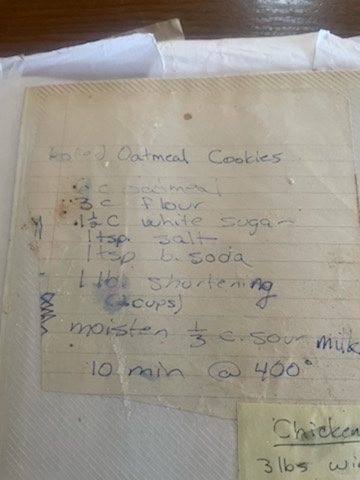 Oatmeal Cookies
c oatmeal
3 c flour
1½ c white sugar
1 tsp. salt
1 tsp b. soda
1 lb. shortening
(2 cups)
moisten ⅓ c. sour milk
10 min @ 400°
Chicken
3 lbs